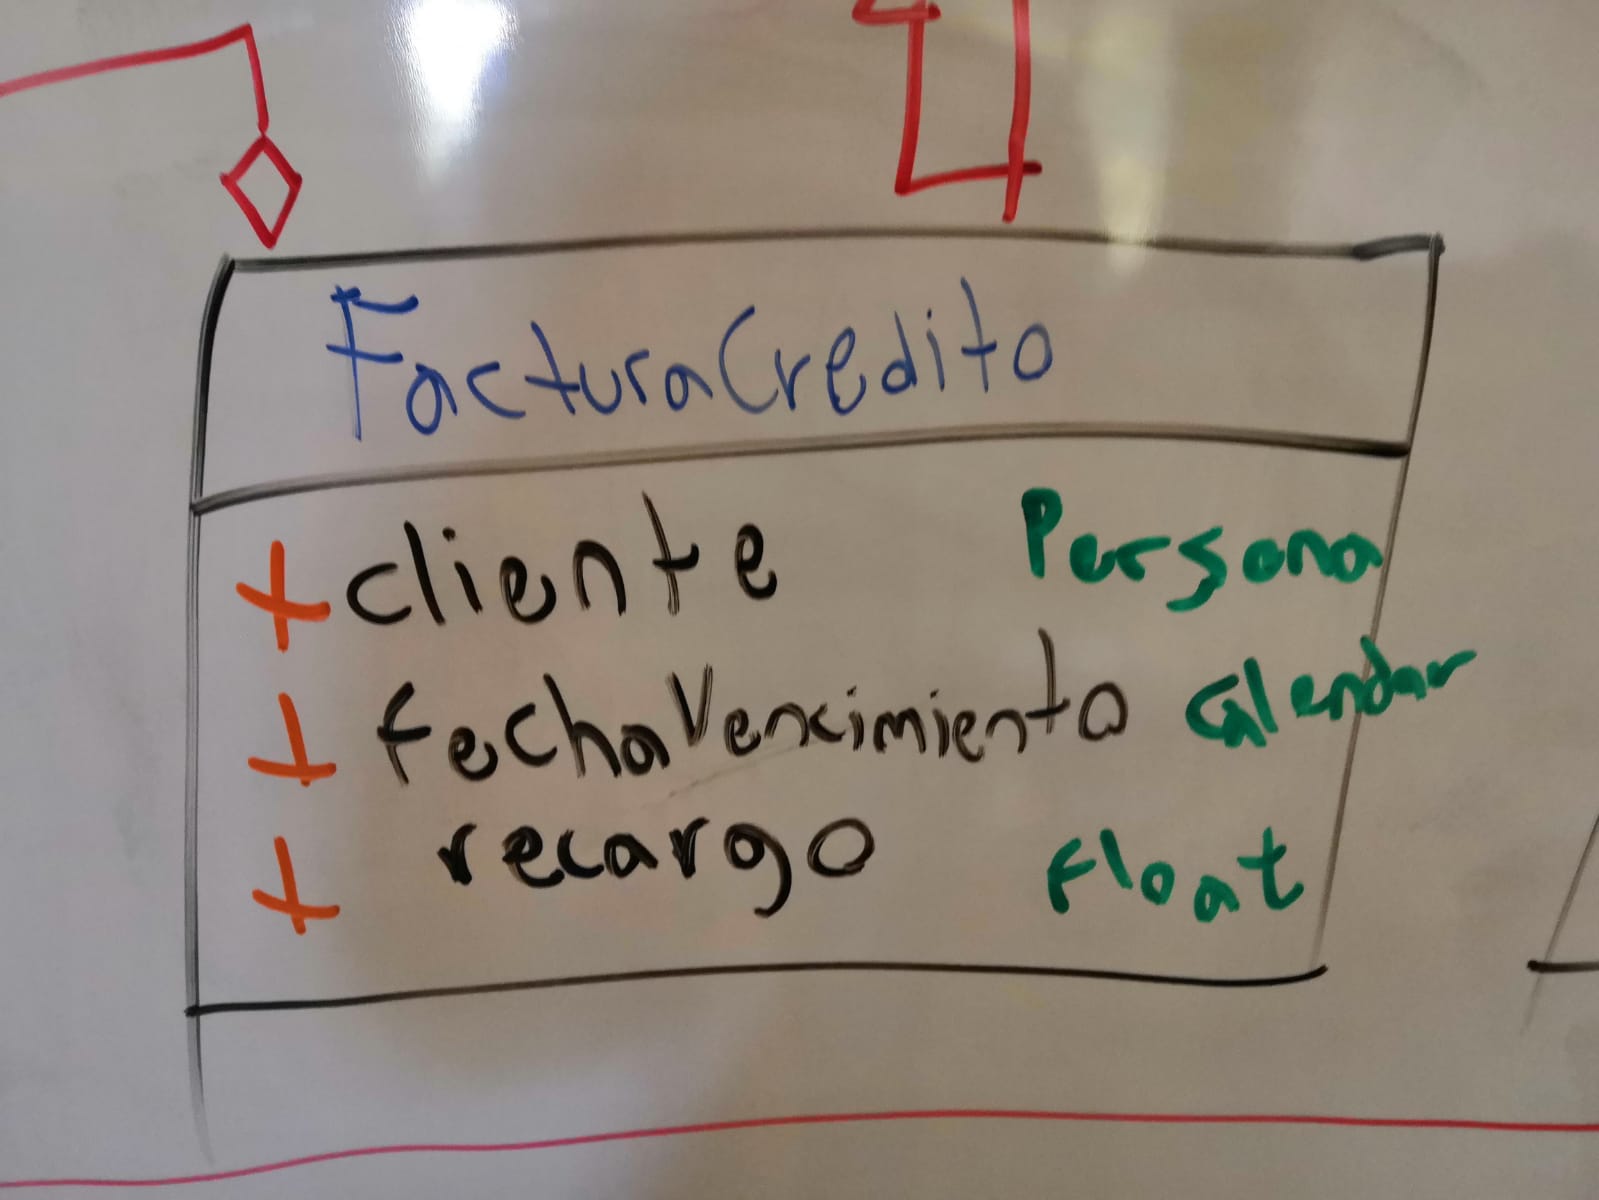 FacturaCredito
+ cliente Persona
+ fechaVencimiento Calendar
+ recargo Float